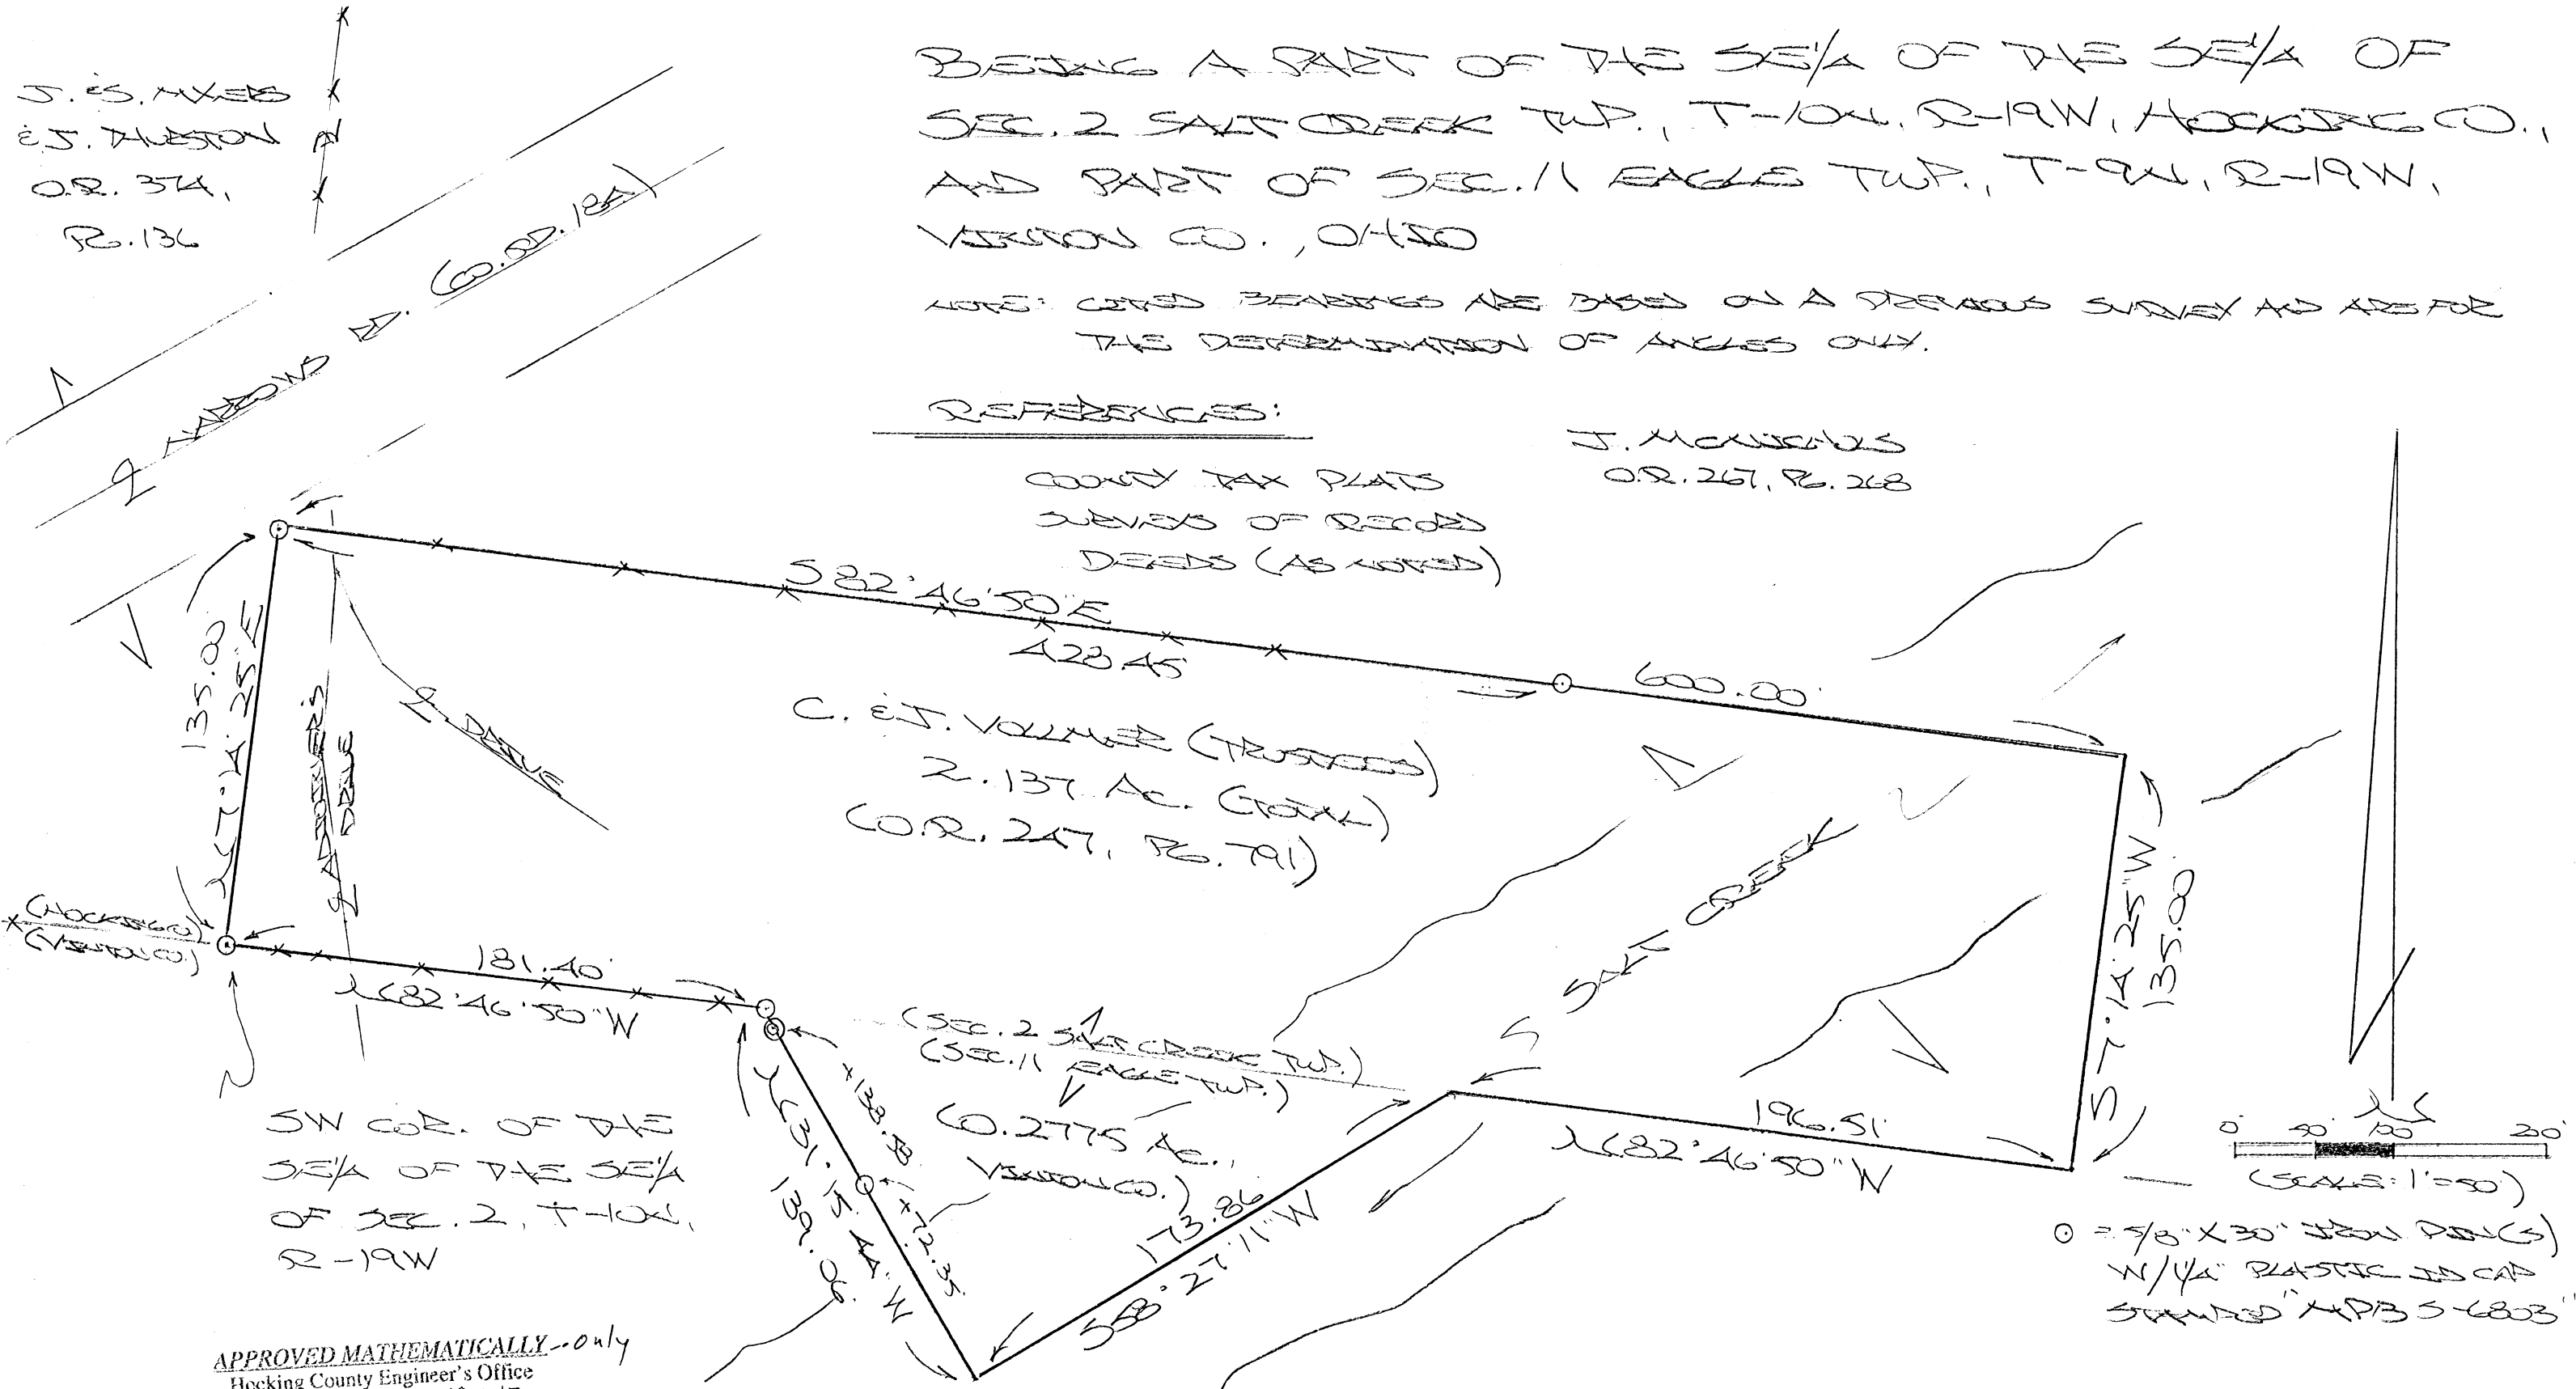 BEING A PART OF THE SE1/4 OF THE SE1/4 OF
SEC. 2 SALT CREEK TWP., T-10N, R-19W, HOCKING CO.,
AND PART OF SEC. 11 EAGLE TWP., T-9N, R-19W,
VINTON CO., OHIO
NOTE: CITED BEARINGS ARE BASED ON A PREVIOUS SURVEY AND ARE FOR
THE DETERMINATION OF ANGLES ONLY.
J. & S. MYERS
& J. THURSTON
O.R. 374,
PG. 136
℄ NARROWS RD. (CO. RD. 18A)
REFERENCES:
COUNTY TAX PLATS
SURVEYS OF RECORD
DEEDS (AS NOTED)
O.R. 267, PG. 268
S 82°46'50"E
428.45'
600.00'
135.00'
N 7°14'25"E
℄ ADJOINER'S
DRIVE
℄ DRIVE
C. & J. VOLLMER (TRUSTEES)
2.137 AC. (TOTAL)
(O.R. 247, PG. 791)
SALT CREEK
S 7°14'25"W
135.00'
(HOCKING CO.)
(VINTON CO.)
181.40'
N 82°46'50"W
(SEC. 2 SALT CREEK TWP.)
(SEC. 11 EAGLE TWP.)
(0.2775 AC.,
VINTON CO.)
N 31°15'44"W
139.06'
+72.35
173.86'
S58°27'11"W
196.51'
N 82°46'50"W
SW COR. OF THE
SE1/4 OF THE SE1/4
OF SEC. 2, T-10N,
R-19W
N
0' 50' 100' 200'
(SCALE: 1"=50')
⊙ = 5/8" X 30" IRON PIN(S)
W/ 1/4" PLASTIC ID CAP
STAMPED "MPB S-6803"
APPROVED MATHEMATICALLY--only
Hocking County Engineer's Office